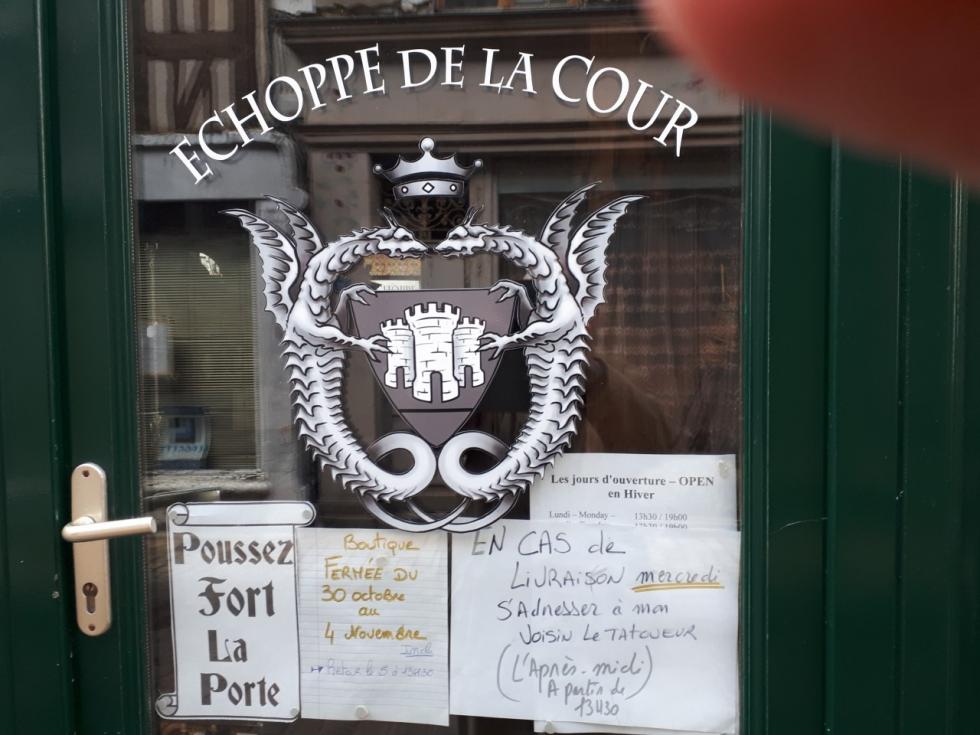 ECHOPPE DE LA COUR
Les jours d'ouverture – OPEN
en Hiver
Lundi – Monday – 13h30 / 19h00
Poussez
Fort
La
Porte
Boutique
FERMÉE DU
30 octobre
au
4 Novembre
Inclu
Retour le 5 à 13H30
EN CAS de
LIVRAISON mercredi
S'Adresser à mon
VOISIN Le TATOUEUR
(L'Après-midi)
A partir de
13H30